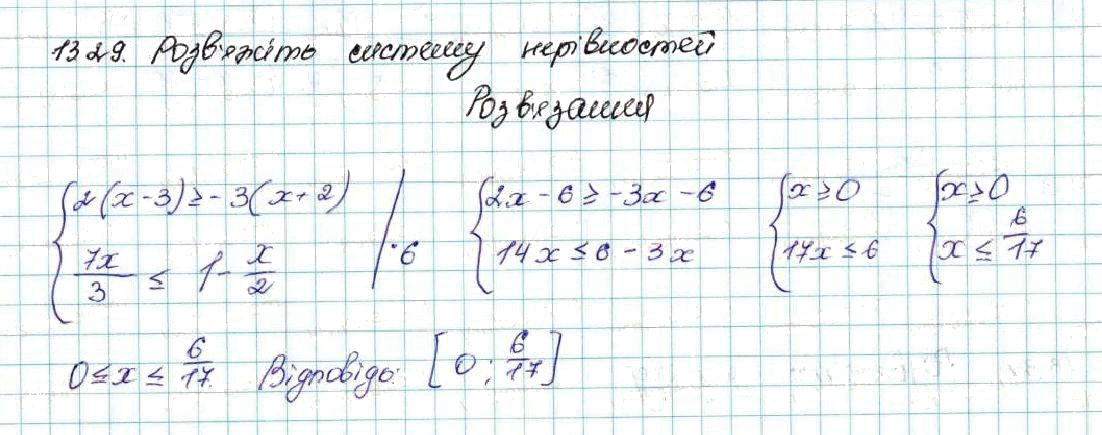 1329. Розв'яжіть систему нерівностей
Розв'язання
{2(x-3) ≥ -3(x+2) {2x - 6 ≥ -3x - 6 {x ≥ 0 {x ≥ 0
{7x/3 ≤ 1 - x/2 | · 6 {14x ≤ 6 - 3x {17x ≤ 6 {x ≤ 6/17
0 ≤ x ≤ 6/17. Відповідь: [0; 6/17]